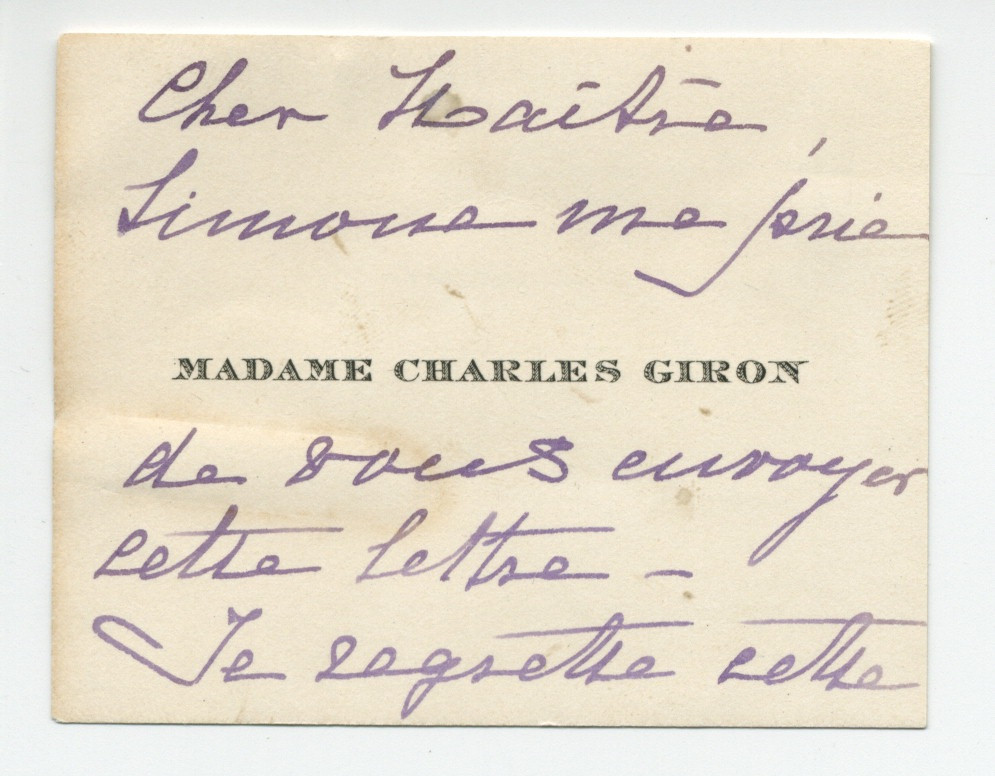 Cher Maître,
Simone me prie
MADAME CHARLES GIRON
de vous envoyer
cette lettre –
Je regrette cette